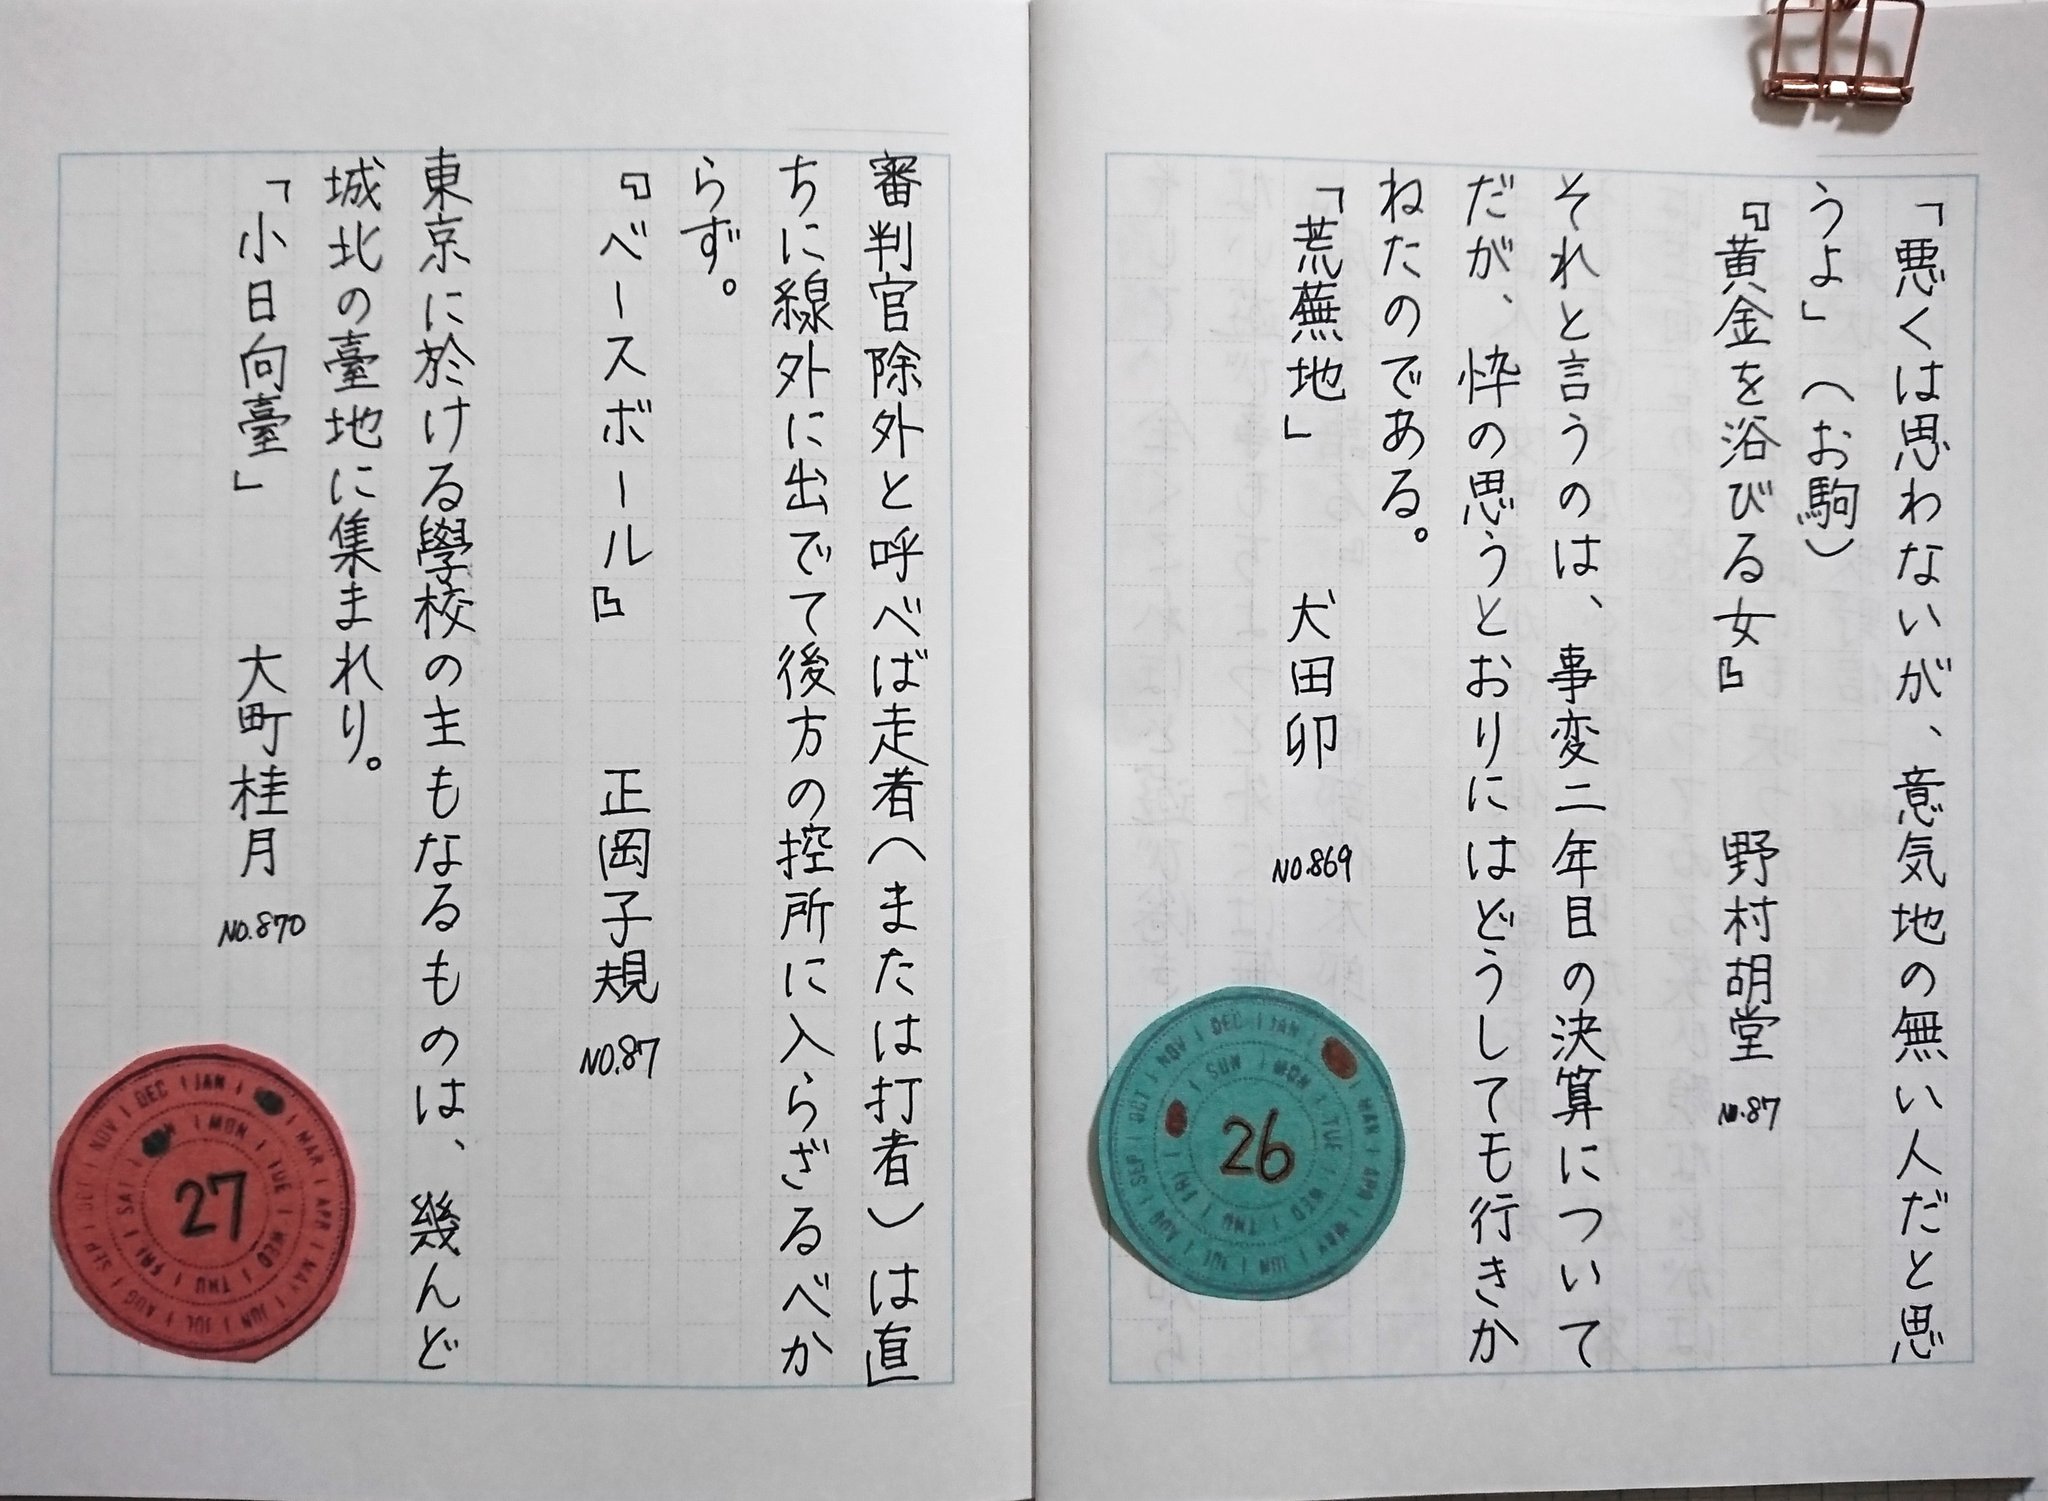 「悪くは思わないが、意気地の無い人だと思
うよ」(お駒)
『黄金を浴びる女』 野村胡堂 No.87
それと言うのは、事変二年目の決算について
だが、忰の思うとおりにはどうしても行きか
ねたのである。
「荒蕪地」 犬田卯 No.869
26
JAN MAR APR MAY JUN JUL AUG SEP OCT NOV DEC
SUN MON TUE WED THU FRI
審判官除外と呼べば走者(または打者)は直
ちに線外に出でて後方の控所に入らざるべか
らず。
『ベースボール』 正岡子規 No.87
東京に於ける學校の主もなるものは、幾んど
城北の臺地に集まれり。
「小日向臺」 大町桂月 No.870
27
JAN MAR APR MAY JUN JUL AUG SEP OCT NOV DEC
MON TUE WED THU FRI SAT